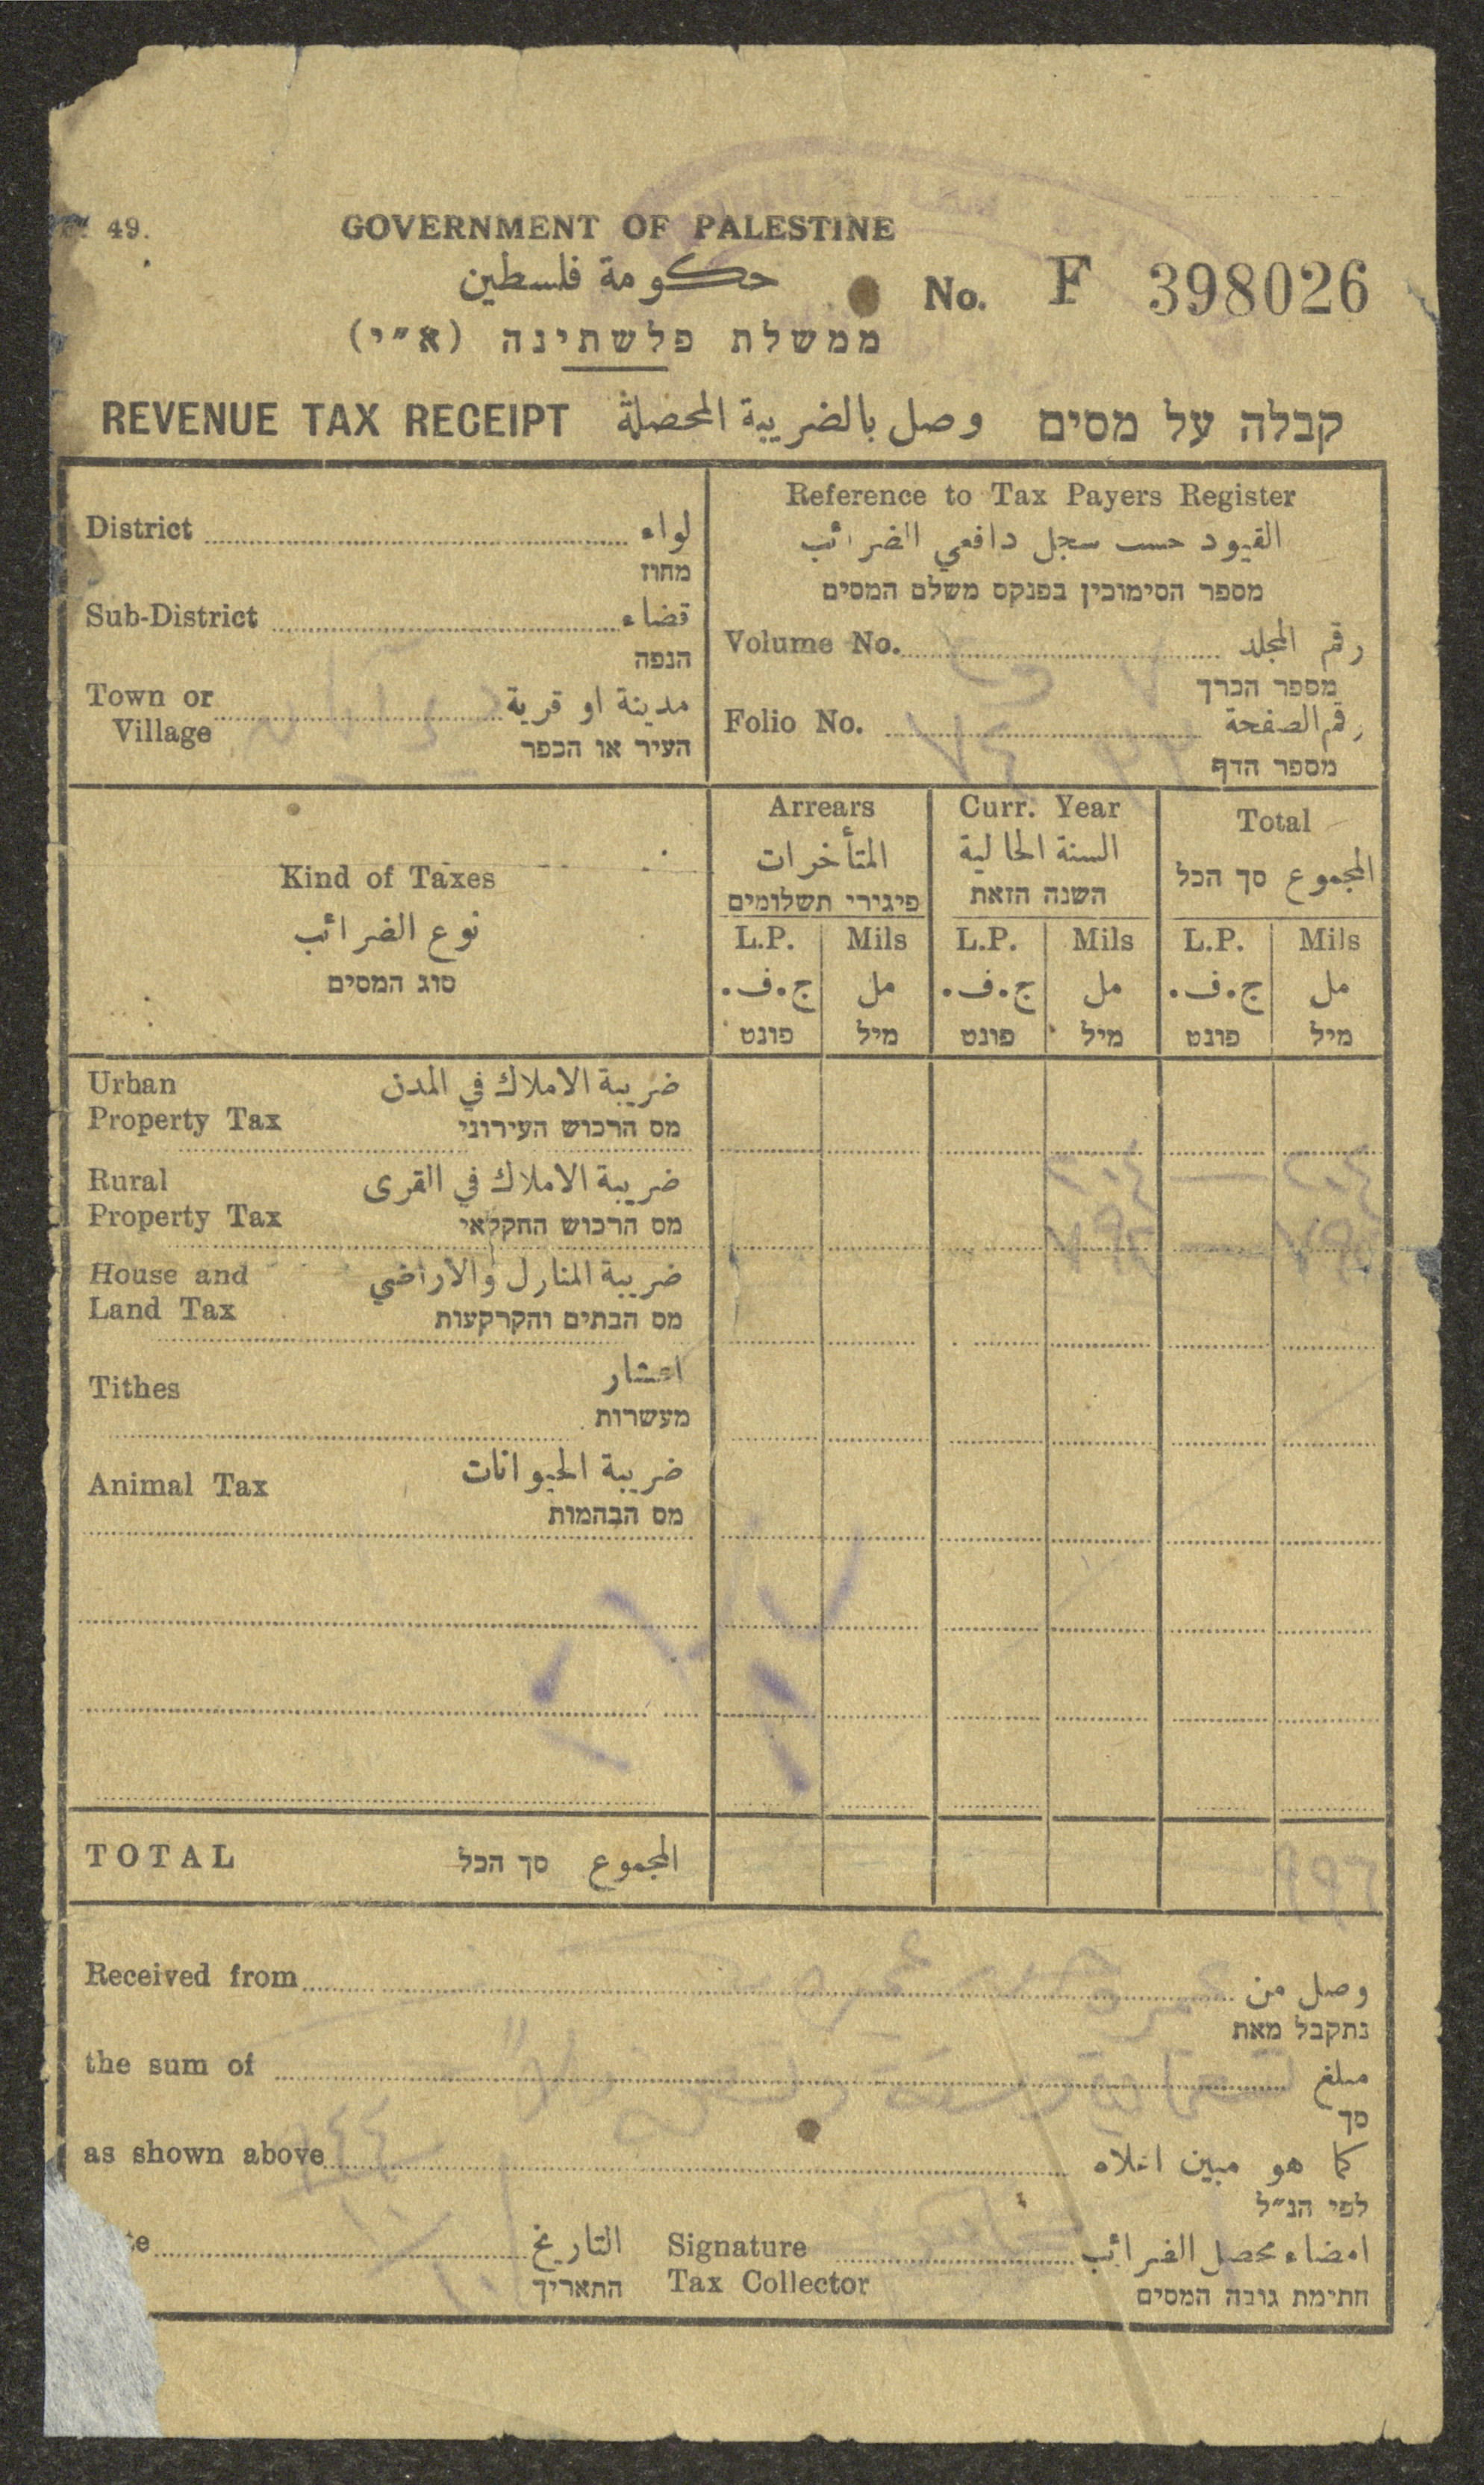 49.
GOVERNMENT OF PALESTINE
حكومة فلسطين
No. F 398026
ממשלת פלשתינה (א״י)
REVENUE TAX RECEIPT وصل بالضريبة المحصلة קבלה על מסים
District لواء
מחוז
Sub-District قضاء
הנפה
Town or Village مدينة او قرية
העיר או הכפר
Reference to Tax Payers Register
القيود حسب سجل دافعي الضرائب
מספר הסימוכין בפנקס משלם המסים
Volume No. رقم المجلد
מספר הכרך
Folio No. رقم الصفحة
מספר הדף
Kind of Taxes
نوع الضرائب
סוג המסים
Arrears
المتأخرات
פיגורי תשלומים
Curr. Year
السنة الحالية
השנה הזאת
Total
المجموع סך הכל
L.P. Mils L.P. Mils L.P. Mils
ج.ف. مل ج.ف. مل ج.ف. مل
פונט מיל פונט מיל פונט מיל
Urban ضريبة الاملاك في المدن
Property Tax מס הרכוש העירוני
Rural ضريبة الاملاك في القرى
Property Tax מס הרכוש החקלאי
House and ضريبة المنازل والاراضي
Land Tax מס הבתים והקרקעות
Tithes اعشار
מעשרות
Animal Tax ضريبة الحيوانات
מס הבהמות
TOTAL المجموع סך הכל
Received from وصل من
נתקבל מאת
the sum of مبلغ
סך
as shown above كما هو مبين اعلاه
לפי הנ״ל
التاريخ Signature امضاء محصل الضرائب
התאריך Tax Collector חתימת גובה המסים